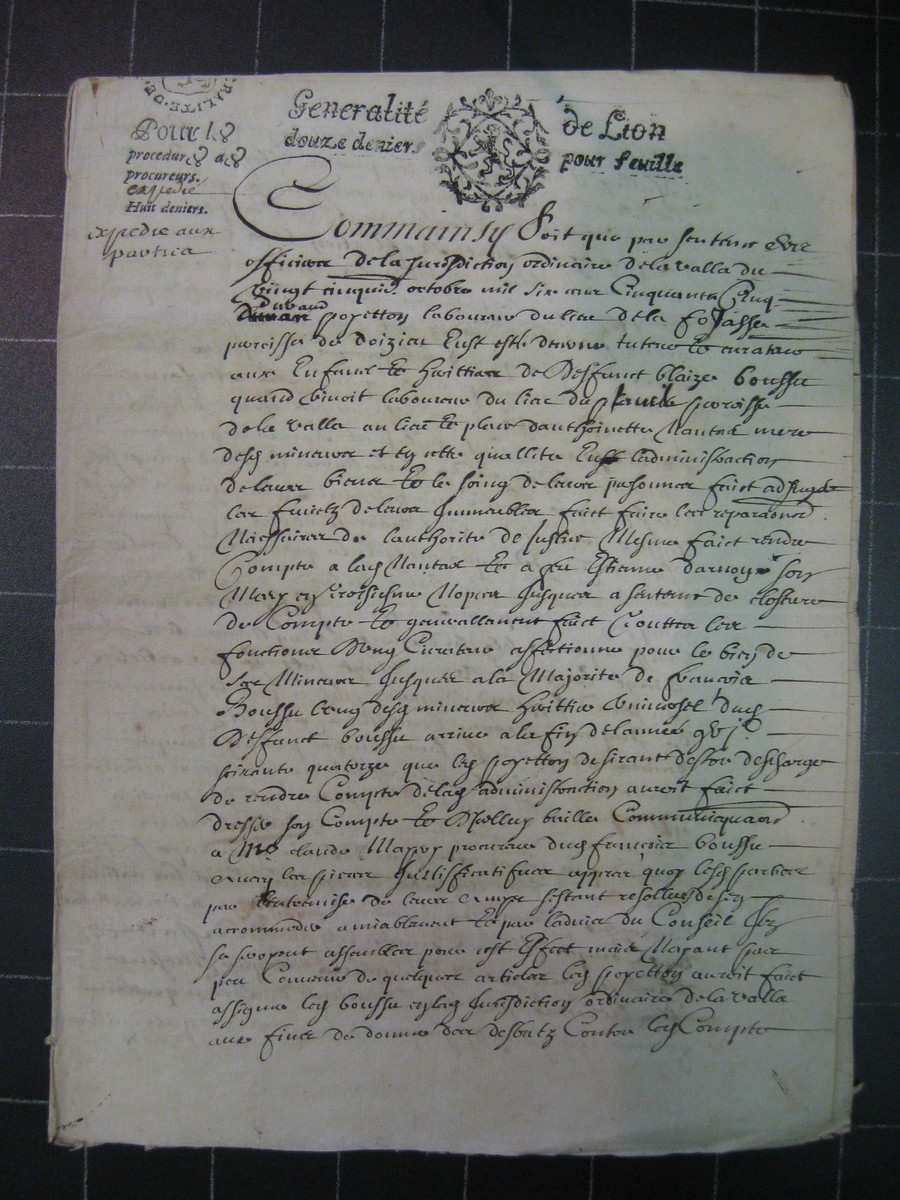 RALITE·DE·
Generalité de Lion
douze deniers pour feuille
Pour les
procedures des
procureurs.
expedié
Huit deniers.
expedie aux
parties
Comme ainsy Soit que par sentence des
officiers de la Jurisdiction ordinaire de la valla du
vingt cinquie. octobre mil six cens Cinquante Cinq
poyetton laboureur du lieu de la fojasse
paroisse de doizieu Eust esté tuteur et curateur
aux Enfans et hoirttiers de Deffunct blaize boussu
quand vivoit laboureur du lieu du paroisse
de la valla au lieu et place danthoinette Mantra mere
desd mineurs et En cette quallite Eust ladministraction
de leurs biens et le soing de leurs personnes faict adjuger
les fruictz de leurs Immeubles faict faire les reparaons
Necessaires de lauthorite de Justice Mesme faict rendre
Compte a lad Mantra et a feu Estienne darnoux son
Mary En Nopces Jusques a sentence de closture
de Compte et generallement faict touttes les
fonctions Dung Curateur affectionne pour le bien de
ses Mineurs Jusques a la Majorite de francois
Boussu lung desd mineurs hoirttier Universel dud
Deffunct boussu arrive a la fin de lannée
soixante quatorze que led poyetton desirant destre descharge
de rendre Compte de lad administraction auroit faict
dresser son Compte et Dicelluy bailler Communicquaon
a Me claude Mayoy procureur dud francois boussu
avecq les pieces Justifficatifves apprès quoy lesd parties
par lentremise de leurs amys sestant resollues den
accommoder amiablement et par ladvis du Conseil Ilz
se seroyent assembles pour cest Effect mais Nayant peu
peu Convenir de quelques articles led poyetton auroit faict
assigner led boussu en lad Jurisdiction ordinaire de la valla
aux fins de donner des desbatz Contre led Compte